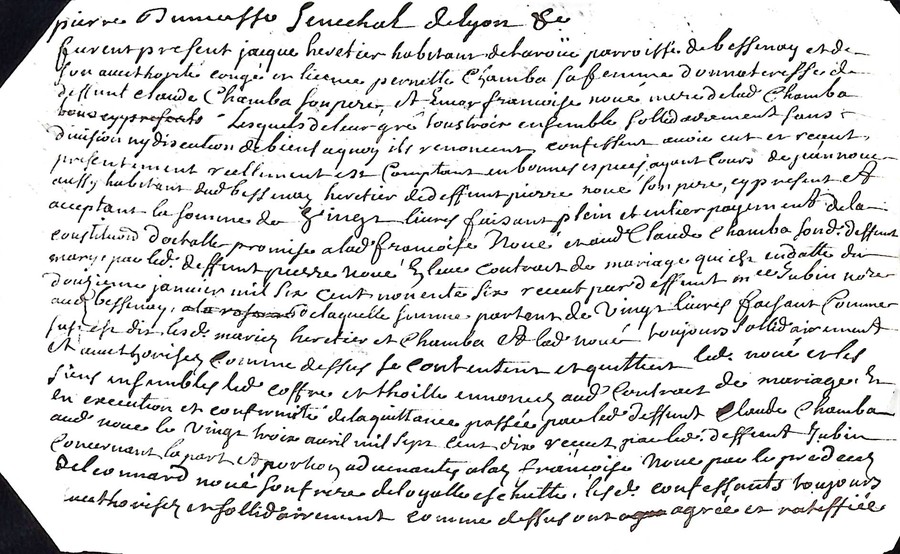 pierre Dumasso Senechal de Lyon &e
furent present jacque heretier habitant de la roüe parroisse de bessenay et de
son authorité congé et licence pernette Chamba sa femme donnateresse de
deffunt Claude Chamba son pere, Et Emar francoise noué mere de lad Chamba
tous cy presents Lesquels de leur gré tous trois ensemble sollidairement sans
division ny discution de biens a quoy ils renoncent, confessent avoir eut et receut,
presentement reellement et comptant en bonnes especes ayant cours de jean noue
aussy habitant dud bessenay heretier de deffunt pierre noué son pere, cy present Et
acceptant la somme de Vingt livres faisant plein et entier payement de la
constitution promise a lad francoise Noué et aud Claude Chamba son d. deffunt
mary, par led. deffunt pierre noué En leur contract de mariage qui est en datte du
douzieme janvier mil six cent nonente six receut par deffunt me Jubin no.re
aud bessenay, de laquelle somme partent de Vingt livres faisant Comme
sus est dit les d. mariez heretier et Chamba Et lad noué toujours sollidairement
Et authorisez Comme dessus se contentent et quittent led. noué et les
siens ensembles led coffre et thoille ennoncez aud Contract de mariage. Et
en execution et conformité de la quittance passée par led deffunt Claude Chamba
aud noue le Vingt trois avril mil sept cent dix receut par led. deffunt Jubin
Concernant la part Et portion advenante a lad francoise Noue par le predecez
de leonnard noué son frere de loyalle eschutte. les d. confessants toujours
authorisez et sollidairement comme dessus ont agreé et ratiffiée